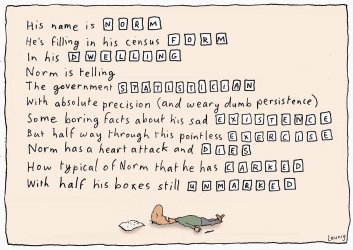 His name is NORM
He's filling in his census FORM
In his DWELLING
Norm is telling
The government STATISTICIAN
With absolute precision (and weary dumb persistence)
Some boring facts about his sad EXISTENCE
But half way through this pointless EXERCISE
Norm has a heart attack and DIES
How typical of Norm that he has CARKED
With half his boxes still UNMARKED
Leunig